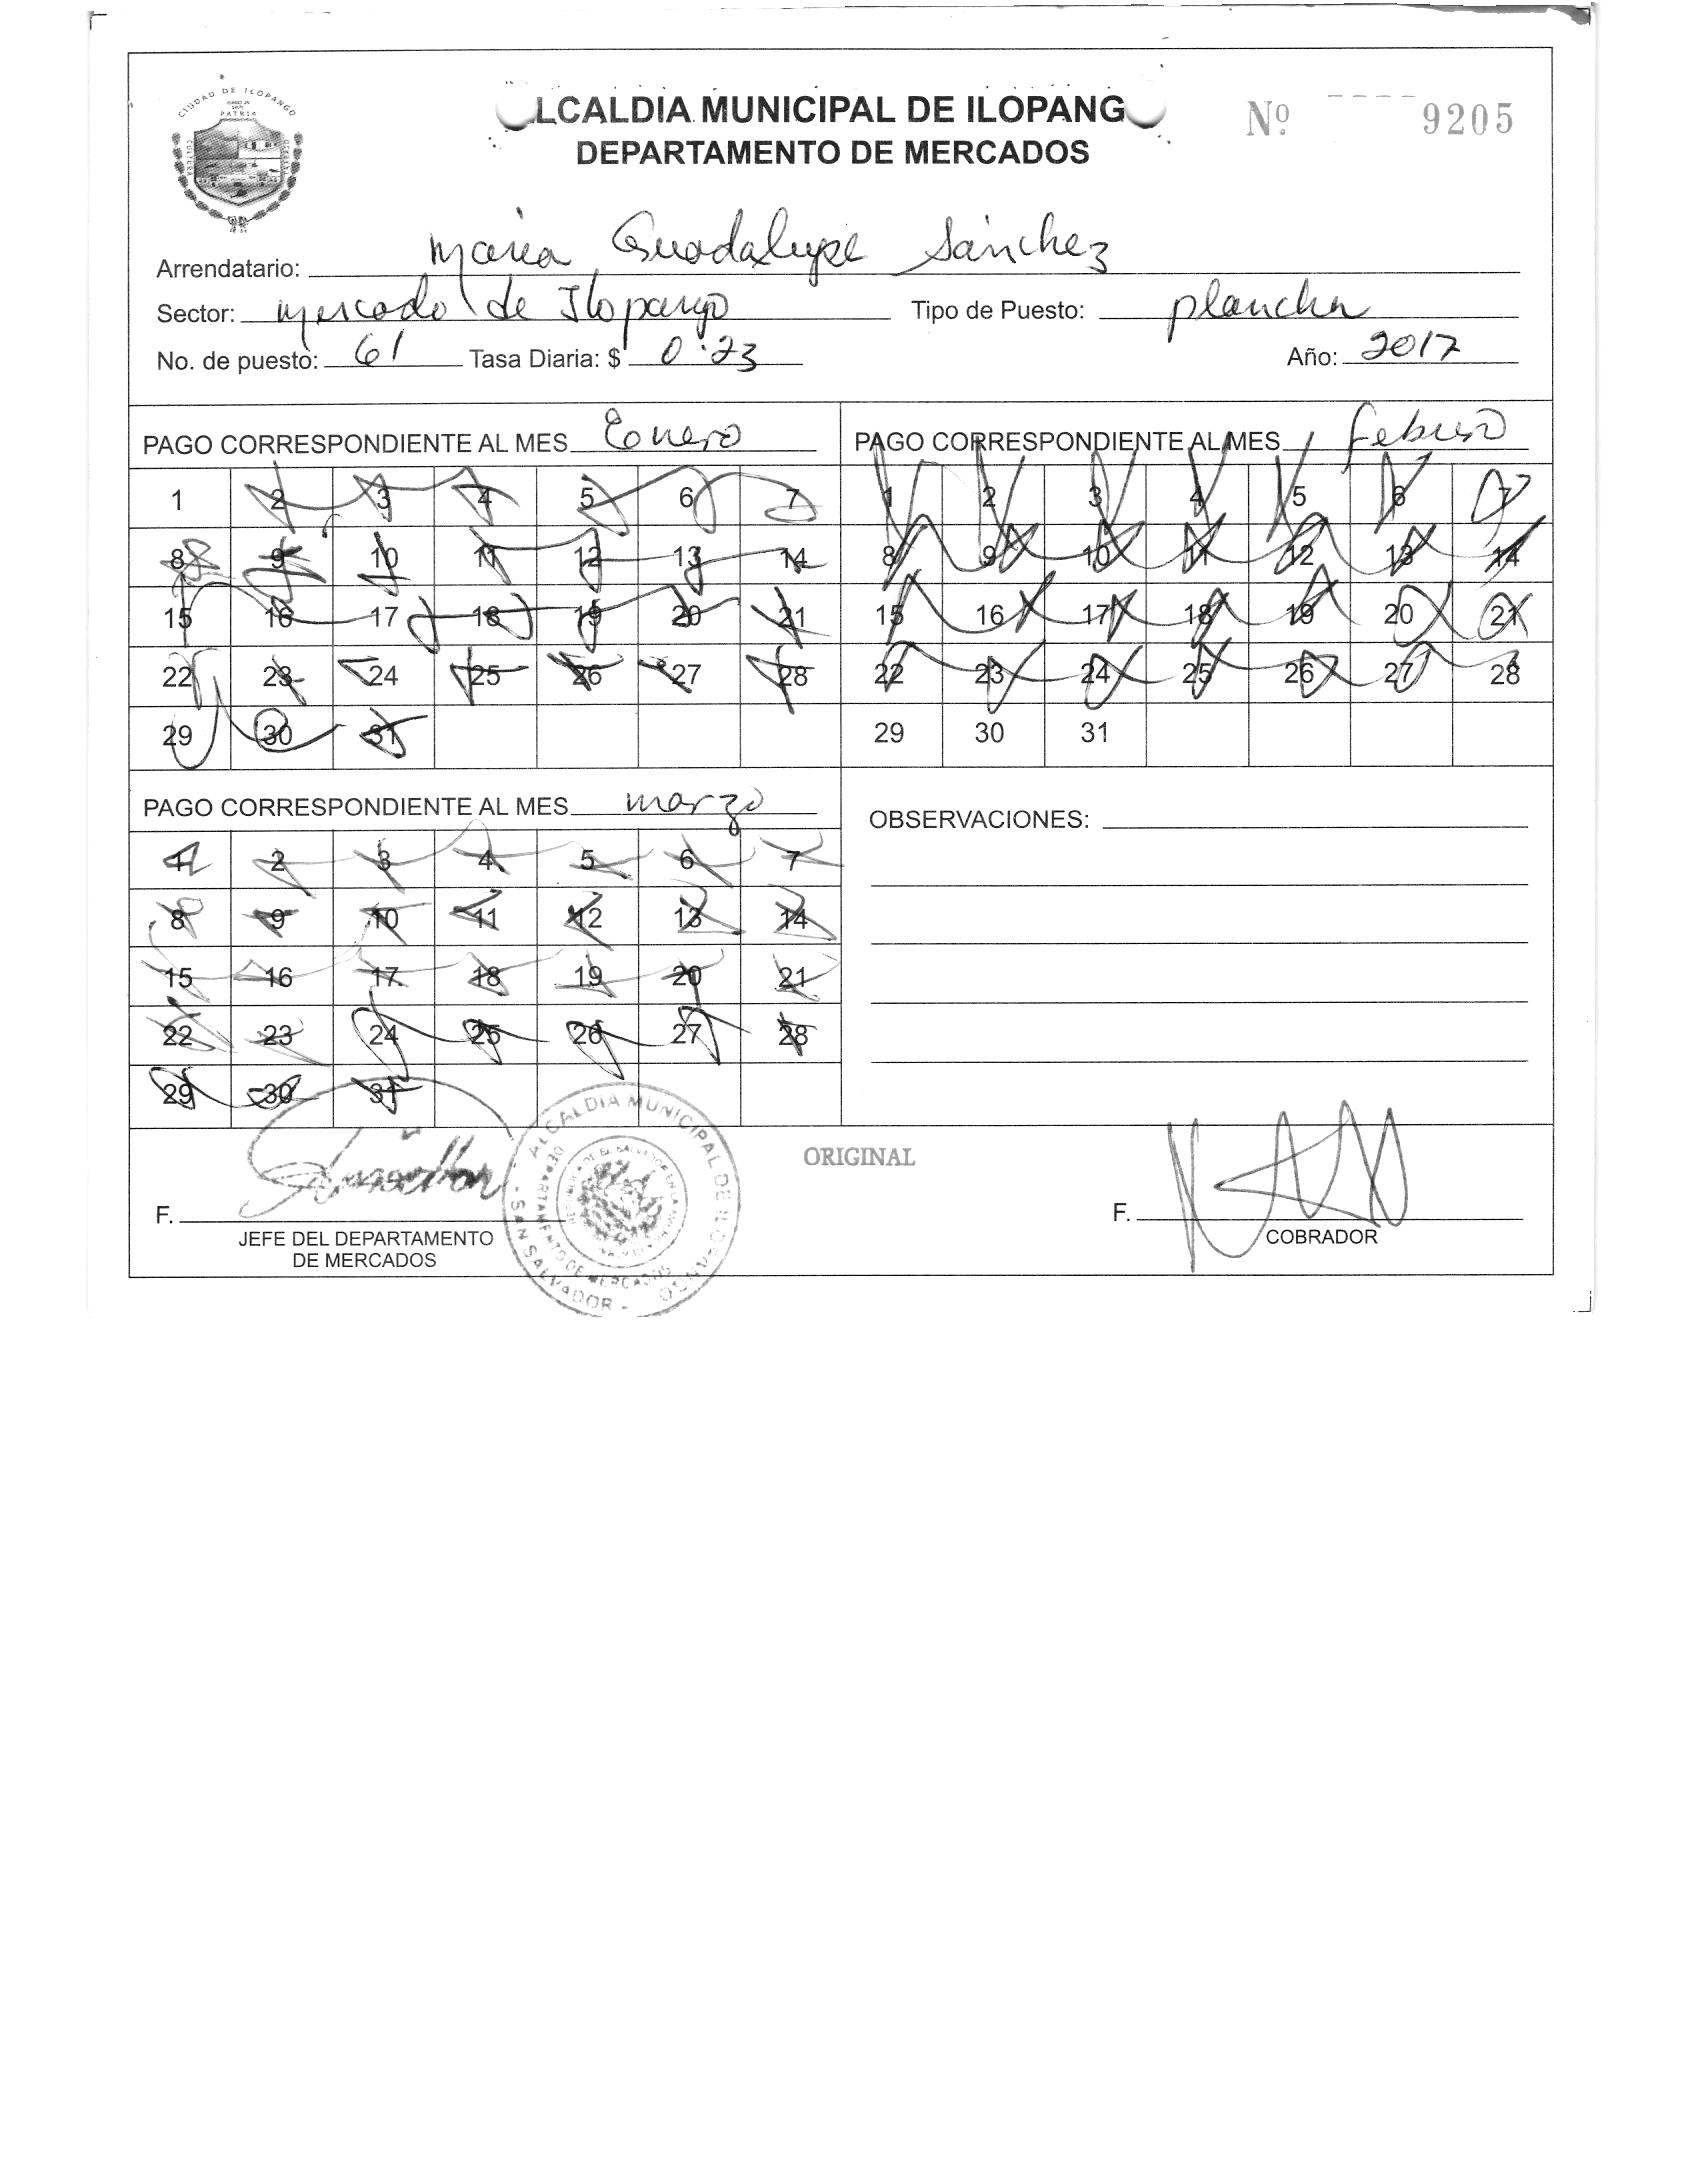 CIUDAD DE ILOPANGO
PATRIA
LCALDIA MUNICIPAL DE ILOPANG
DEPARTAMENTO DE MERCADOS
Nº 9205
Arrendatario: Maria Guadalupe Sánchez
Sector: Mercado de Ilopango Tipo de Puesto: plancha
No. de puesto: 61 Tasa Diaria: $ 0.23 Año: 2017
PAGO CORRESPONDIENTE AL MES Enero
1 2 3 4 5 6 7
8 9 10 11 12 13 14
15 16 17 18 19 20 21
22 23 24 25 26 27 28
29 30 31
PAGO CORRESPONDIENTE AL MES febrero
1 2 3 4 5 6 7
8 9 10 11 12 13 14
15 16 17 18 19 20 21
22 23 24 25 26 27 28
29 30 31
PAGO CORRESPONDIENTE AL MES marzo
1 2 3 4 5 6 7
8 9 10 11 12 13 14
15 16 17 18 19 20 21
22 23 24 25 26 27 28
29 30 31
OBSERVACIONES:
F.
JEFE DEL DEPARTAMENTO
DE MERCADOS
ALCALDIA MUNICIPAL DE ILOPANGO
- SAN SALVADOR -
DEPARTAMENTO DE MERCADOS
ORIGINAL
F.
COBRADOR